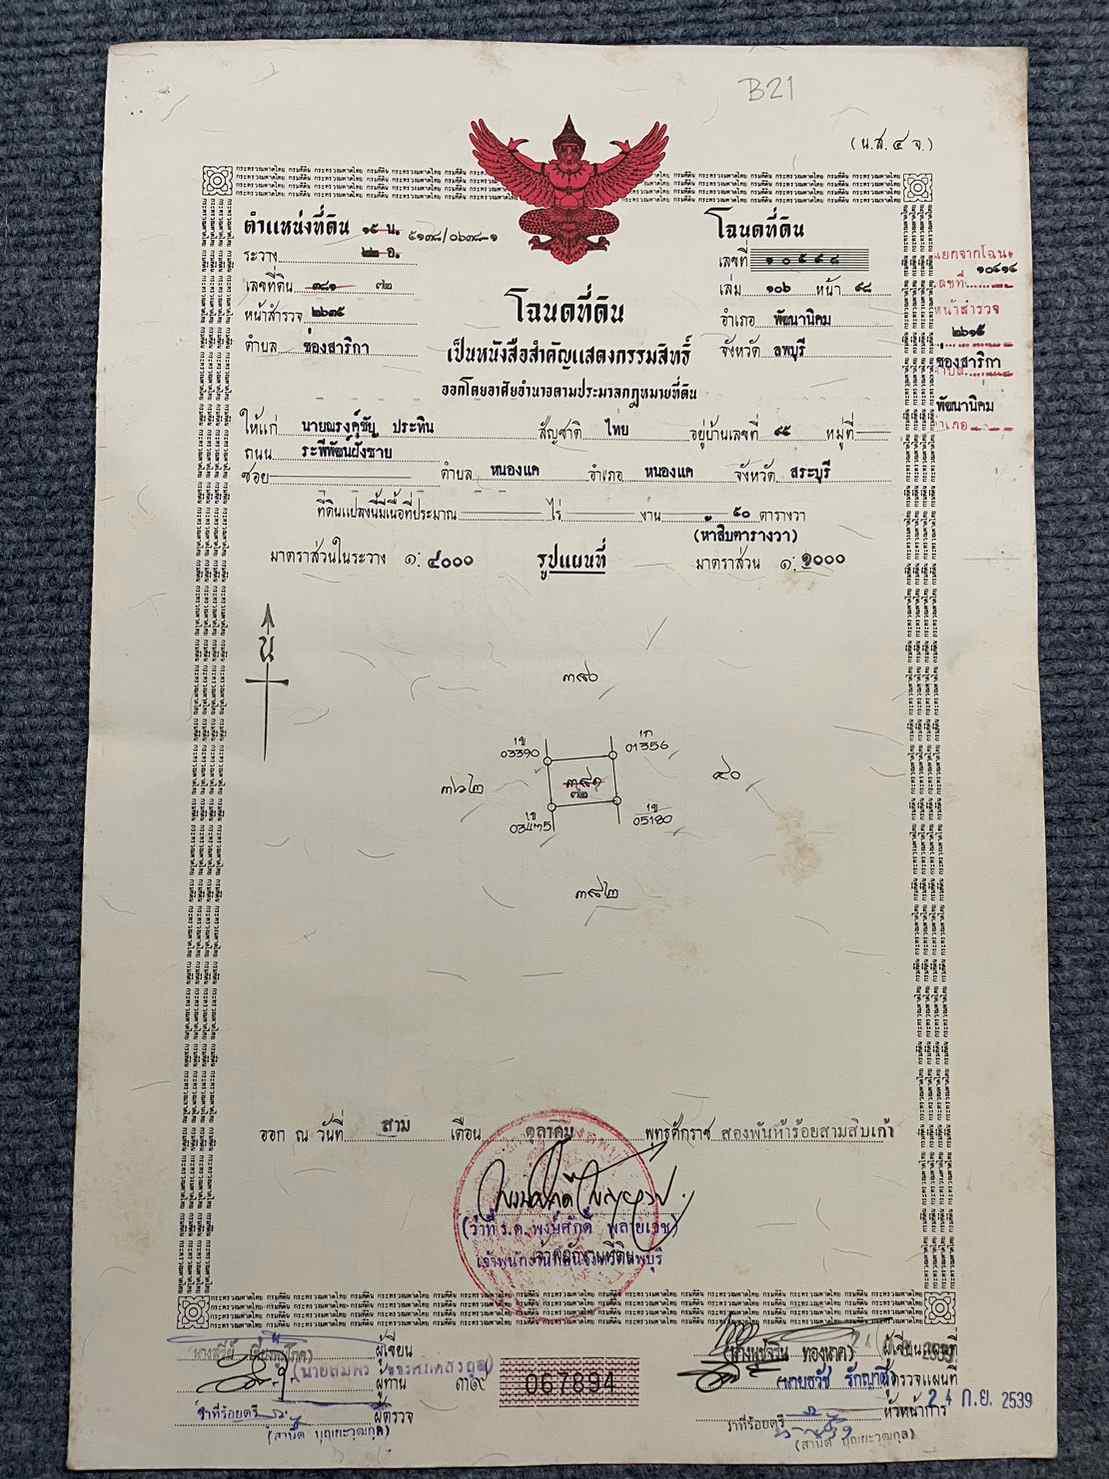 B21
(น.ส.๔ จ.)
ตำแหน่งที่ดิน ๑๕ น. ๕๑๓๘/๐๖๓๘-๑
ระวาง ๒๒ อ.
เลขที่ดิน ๓๘๑ ๗๒
หน้าสำรวจ ๒๖๓๕
ตำบล ช่องสาริกา
โฉนดที่ดิน
เลขที่ ๑๐๕๙๘
เล่ม ๑๐๖ หน้า ๙๘
อำเภอ พัฒนานิคม
จังหวัด ลพบุรี
แยกจากโฉนด
เลขที่ ๑๐๔๑๔
หน้าสำรวจ
๒๖๑๕
ช่องสาริกา
พัฒนานิคม
อำเภอ
โฉนดที่ดิน
เป็นหนังสือสำคัญแสดงกรรมสิทธิ์
ออกโดยอาศัยอำนาจตามประมวลกฎหมายที่ดิน
ให้แก่ นายณรงค์ชัย ประทิน สัญชาติ ไทย อยู่บ้านเลขที่ ๙๕ หมู่ที่
ถนน ระพีพัฒน์ฝั่งซ้าย
ซอย ตำบล หนองแค อำเภอ หนองแค จังหวัด สระบุรี
ที่ดินแปลงนี้มีเนื้อที่ประมาณ ไร่ งาน ๕๐ ตารางวา
(ห้าสิบตารางวา)
มาตราส่วนในระวาง ๑: ๔๐๐๐ รูปแผนที่ มาตราส่วน ๑: ๑๐๐๐
น
๓๘๐
03390 01356
๓๘๑
๗๒
๗๖๒ ๙๐
05180
๓๘๒
ออก ณ วันที่ สาม เดือน ตุลาคม พุทธศักราช สองพันห้าร้อยสามสิบเก้า
(ว่าที่ ร.ต. พงษ์ศักดิ์ พลายเวช)
เจ้าพนักงานที่ดินจังหวัดลพบุรี
ผู้เขียน
ผู้ทาน
ว่าที่ร้อยตรี ผู้ตรวจ
(สานิต บุณยะวุฒกุล)
๓๙
067894
ทองนาค) ผู้เขียนแผนที่
(นายธวัช รักญาติ) ผู้ตรวจแผนที่
หัวหน้าการ 24 ก.ย. 2539
ว่าที่ร้อยตรี
(สานิต บุณยะวุฒกุล)